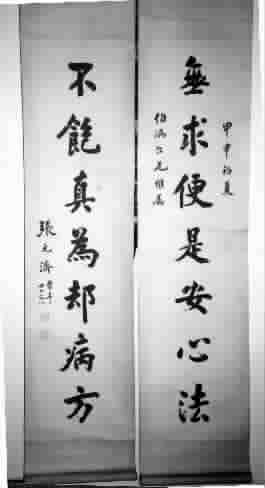 甲申初夏
無求便是安心法
仁兄雅屬
不飽真為却病方
張元濟